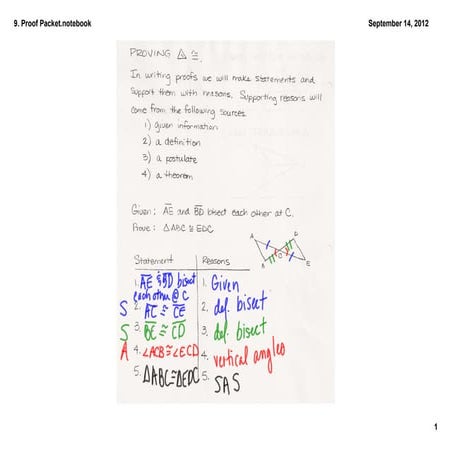 9. Proof Packet.notebook
September 14, 2012
PROVING △ ≅.
In writing proofs we will make statements and
support them with reasons. Supporting reasons will
come from the following sources.
1) given information
2) a definition
3) a postulate
4) a theorem
Given: AE and BD bisect each other at C.
Prove: △ABC ≅ EDC
A D
C
B E
Statement Reasons
1. AE & BD bisect each other @ C 1. Given
S 2. AC ≅ CE 2. def. bisect
S 3. BC ≅ CD 3. def. bisect
A 4. ∠ACB ≅ ∠ECD 4. vertical angles
5. △ABC ≅ △EDC 5. SAS
1